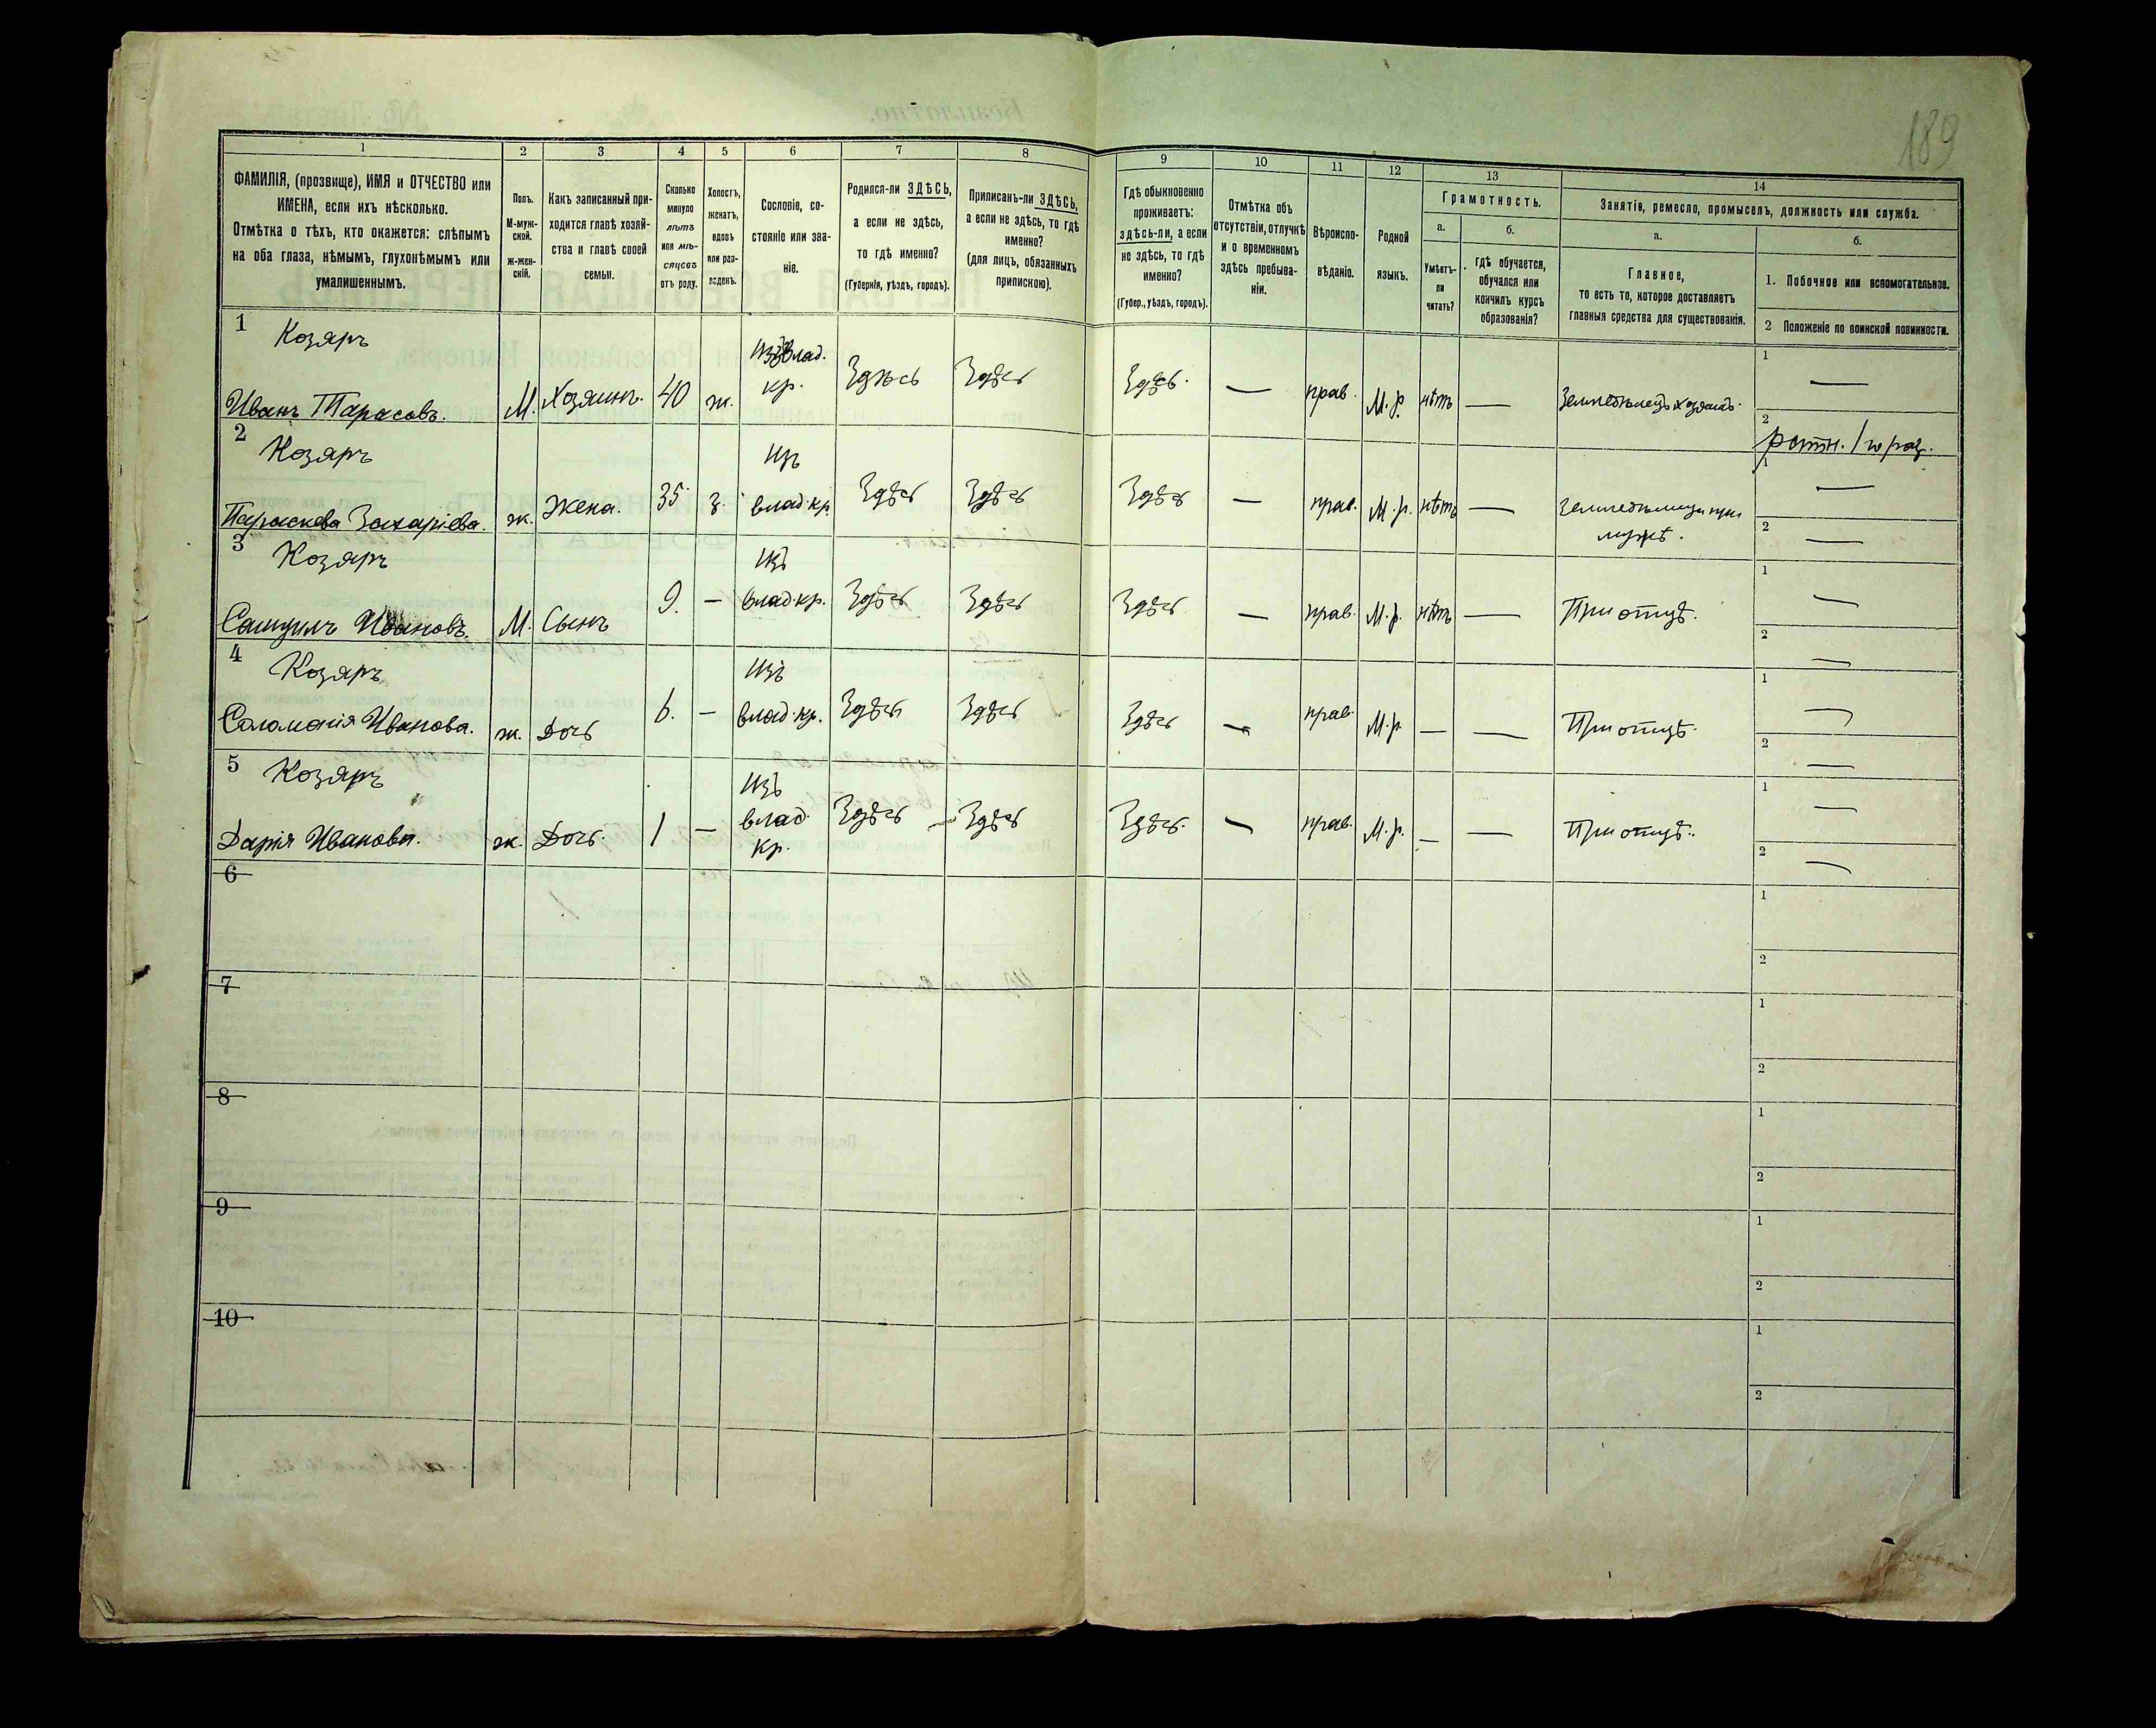 189
1
2
3
4
5
6
7
8
9
10
11
12
13
14
ФАМИЛІЯ, (прозвище), ИМЯ и ОТЧЕСТВО или
ИМЕНА, если ихъ нѣсколько.
Отмѣтка о тѣхъ, кто окажется: слѣпымъ
на оба глаза, нѣмымъ, глухонѣмымъ или
умалишеннымъ.
Полъ.
М-муж-
ской.
ж-жен-
скій.
Какъ записанный при-
ходится главѣ хозяй-
ства и главѣ своей
семьи.
Сколько
минуло
лѣтъ
или мѣ-
сяцевъ
отъ роду.
Холостъ,
женатъ,
вдовъ
или раз-
веденъ.
Сословіе, со-
стояніе или зва-
ніе.
Родился-ли ЗДѢСЬ,
а если не здѣсь,
то гдѣ именно?
(Губернія, уѣздъ, городъ).
Приписанъ-ли ЗДѢСЬ,
а если не здѣсь, то гдѣ
именно?
(для лицъ, обязанныхъ
припискою).
Гдѣ обыкновенно
проживаетъ:
здѣсь-ли, а если
не здѣсь, то гдѣ
именно?
(Губер., уѣздъ, городъ).
Отмѣтка объ
отсутствіи, отлучкѣ
и о временномъ
здѣсь пребыва-
ніи.
Вѣроиспо-
вѣданіе.
Родной
языкъ.
Грамотность.
а.
Умѣетъ-
ли
читать?
б.
гдѣ обучается,
обучался или
кончилъ курсъ
образованія?
Занятіе, ремесло, промыселъ, должность или служба.
а.
Главное,
то есть то, которое доставляетъ
главныя средства для существованія.
б.
1. Побочное или вспомогательное.
2 Положеніе по воинской повинности.
1 Козяръ
Иванъ Тарасовъ. М. Хозяинъ. 40 ж. изъ влад. кр. Здѣсь Здѣсь Здѣсь. — прав. М. р. нѣтъ — Земледѣлецъ хозяинъ. 1 — 2
2 Козяръ
Параскева Захаріева. ж. Жена. 35 з. изъ влад. кр. Здѣсь Здѣсь Здѣсь — прав. М. р. нѣтъ — земледѣлица при мужѣ. 1 — 2 —
3 Козяръ
Ивановъ. М. Сынъ 9. — изъ влад. кр. Здѣсь Здѣсь Здѣсь — прав. М. р. нѣтъ — При отцѣ. 1 — 2 —
4 Козяръ
Соломанія Иванова. ж. Дочь 6. — изъ влад. кр. Здѣсь Здѣсь Здѣсь — прав. М. р. — — При отцѣ. 1 — 2 —
5 Козяръ
Дарія Иванова. ж. Дочь. 1 — изъ влад. кр. Здѣсь Здѣсь Здѣсь. — прав. М. р. — — При отцѣ. 1 — 2 —
6 1 2
7 1 2
8 1 2
9 1 2
10 1 2